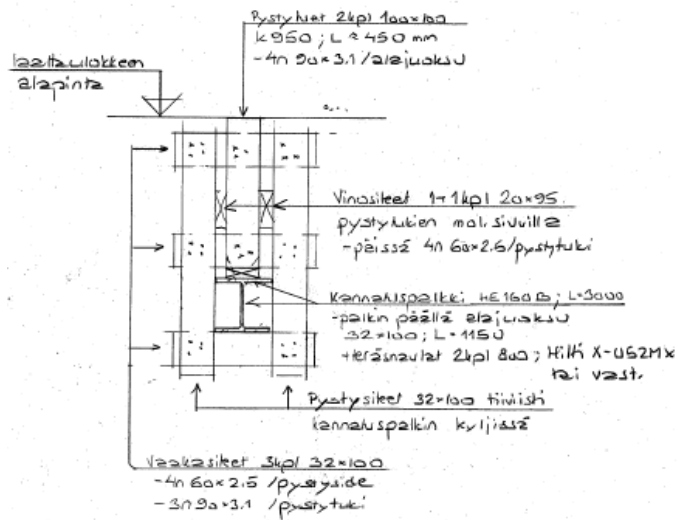 Pystytuet 2kpl 100×100
k 950 ; L ≈ 450 mm
-4n 90×3.1 /alajuoksu
laattaulokkeen
alapinta
Vinositeet 1+1kpl 20×95
pystytukien mol. sivuilla
-päissä 4n 60×2.5/pystytuki
Kannatuspalkki HE160B; L=3000
-palkin päällä alajuoksu
32×100; L=1150
+teräsnaulat 2kpl 800; Hilti
tai vast.
Pystysiteet 32×100 tiiviisti
kannatuspalkin kyljissä
Vaakasiteet 3kpl 32×100
-4n 60×2.5 /pystyside
-3n 90×3.1 /pystytuki